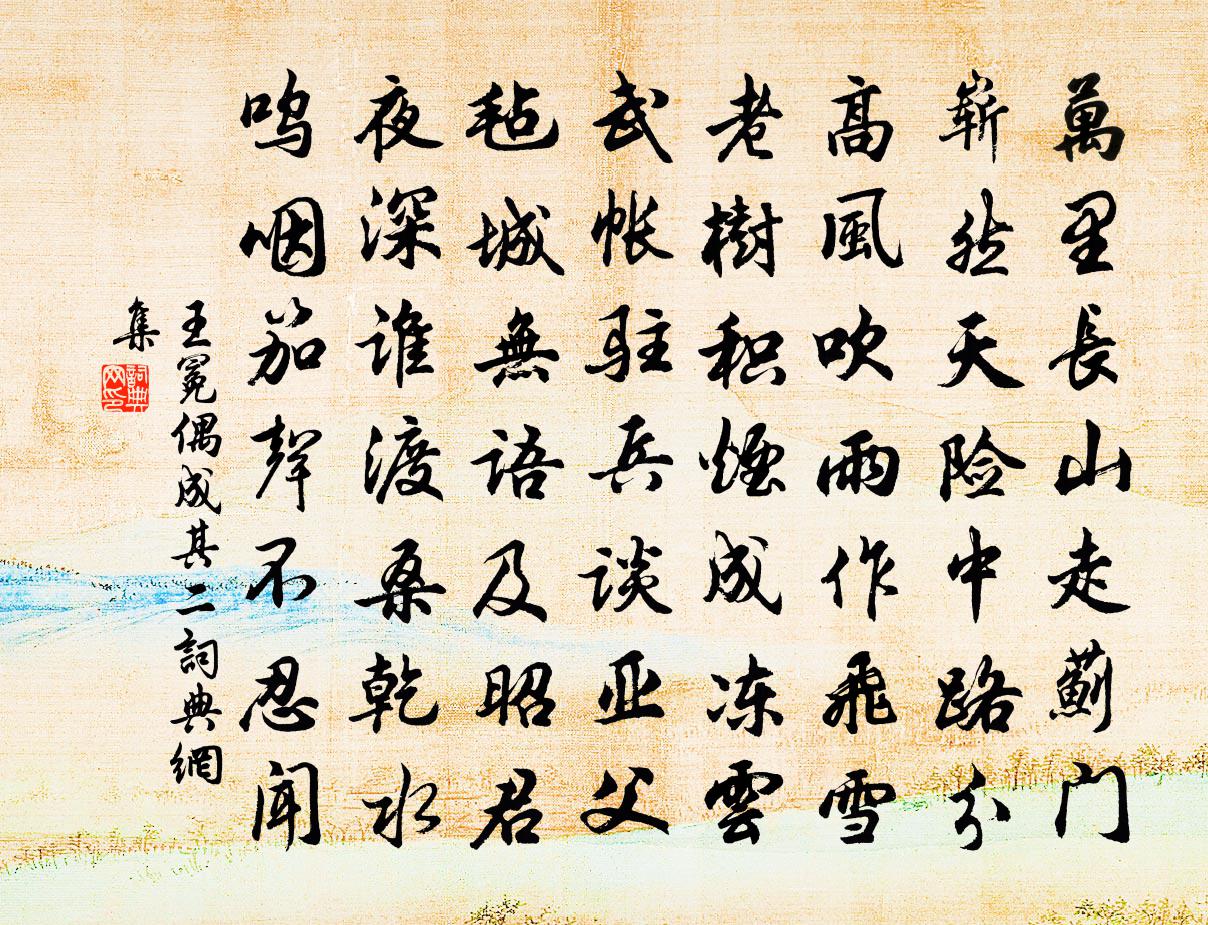 萬里長山走薊门
嶄然天险中路分
高風吹雨作飛雪
老樹积煙成冻雲
武帐駐兵谈亚父
毡城無語及昭君
夜深谁渡桑乾水
呜咽笳聲不忍闻
王冕偶成其二詞典網
集
詞典
网印